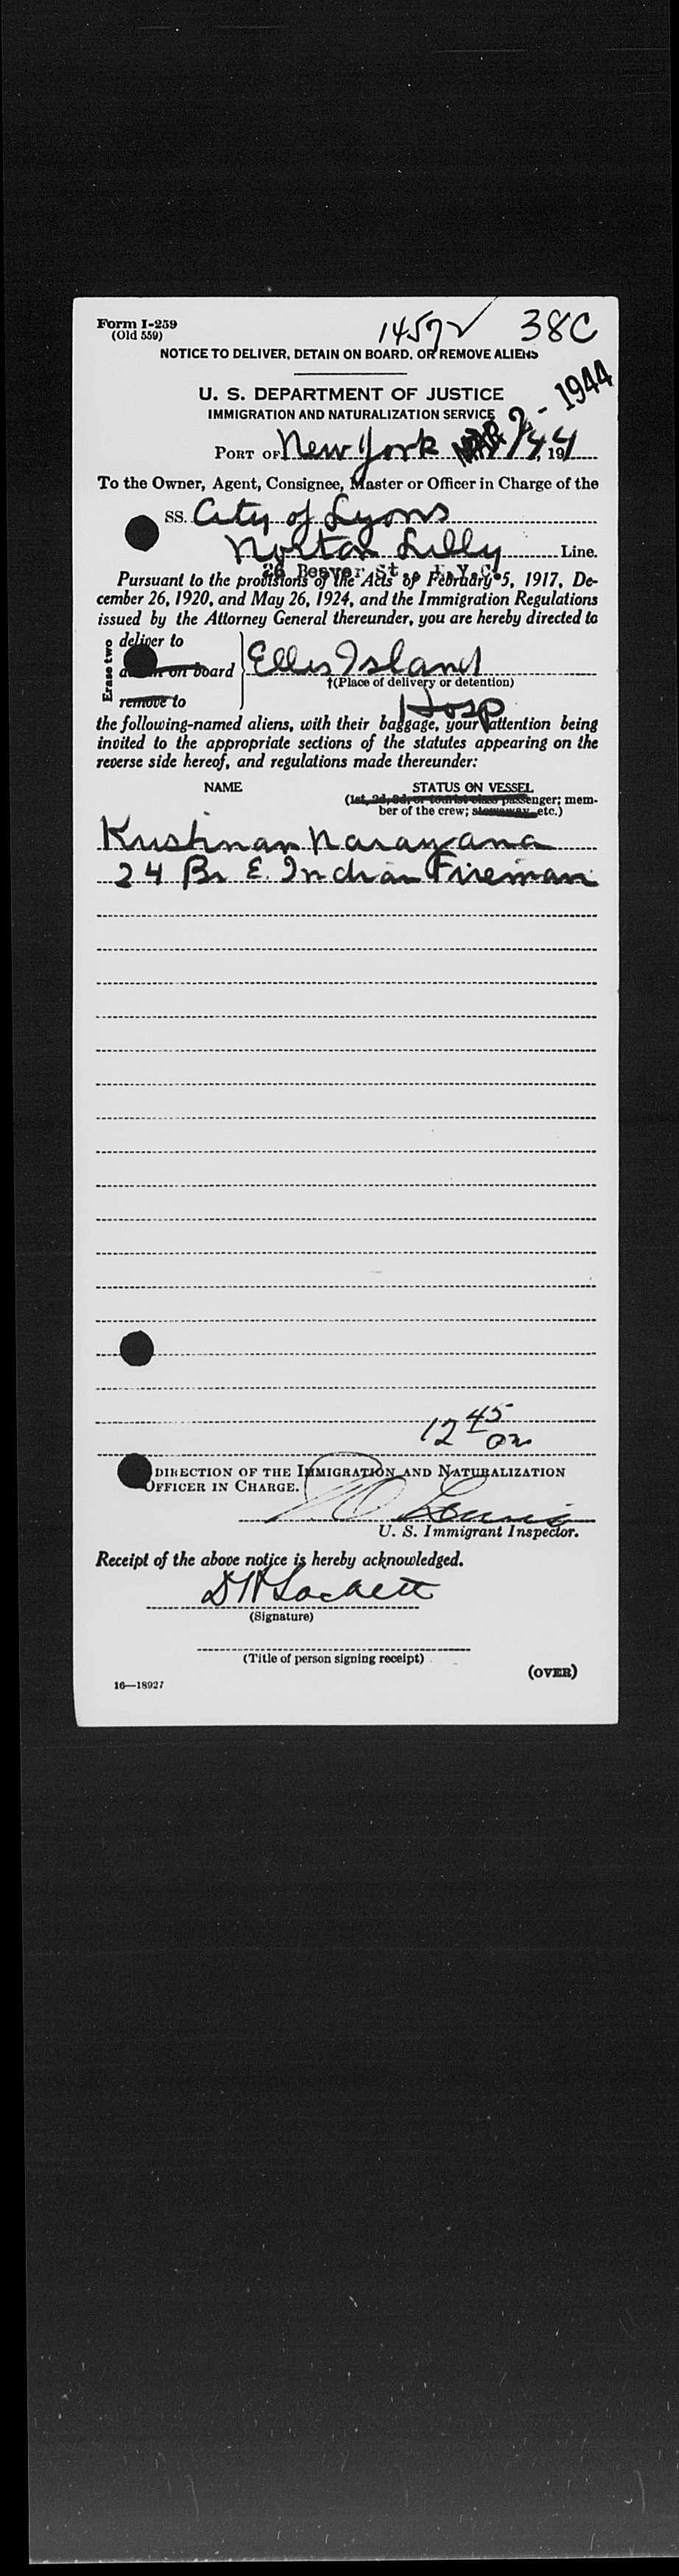 Form I-259
(Old 559)
14572 38C
NOTICE TO DELIVER, DETAIN ON BOARD, OR REMOVE ALIENS
U. S. DEPARTMENT OF JUSTICE
IMMIGRATION AND NATURALIZATION SERVICE
MAR 2 - 1944
PORT OF New York 44, 19
To the Owner, Agent, Consignee, Master or Officer in Charge of the
SS. City of Lyons
Norton Lilly Line.
26 Beaver St., N.Y.C.
Pursuant to the provisions of the Acts of February 5, 1917, De-
cember 26, 1920, and May 26, 1924, and the Immigration Regulations
issued by the Attorney General thereunder, you are hereby directed to
Erase two
deliver to
on board
remove to
Ellis Island
†(Place of delivery or detention)
Hosp
the following-named aliens, with their baggage, your attention being
invited to the appropriate sections of the statutes appearing on the
reverse side hereof, and regulations made thereunder:
NAME STATUS ON VESSEL
(1st, 2d, 3d, or tourist class passenger; mem-
ber of the crew; stowaway, etc.)
Krishnan Narayana
24 Br E. Indian Fireman
12 45
DIRECTION OF THE IMMIGRATION AND NATURALIZATION
OFFICER IN CHARGE.
U. S. Immigrant Inspector.
Receipt of the above notice is hereby acknowledged.
(Signature)
(Title of person signing receipt)
(OVER)
16—18927